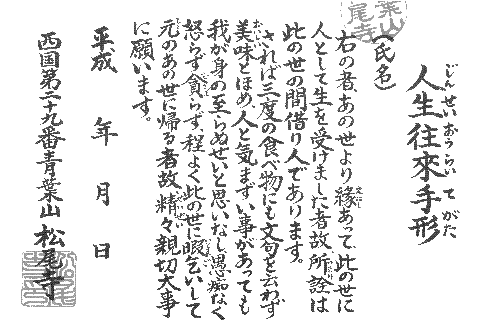 人生往來手形
（氏名）
右の者、あの世より縁あって此の世に
人として生を受けました者故所詮は
此の世の間借り人であります。
されば三度の食べ物にも文句を云わず
美味とほめ、人と気まずい事があっても
我が身の至らぬせいと思いなし愚痴なく
怒らず、貪らず、程よく此の世に暇乞いして
元のあの世に帰る者故、精々親切大事
に願います。
平成　年　月　日
西国第二十九番青葉山 松尾寺